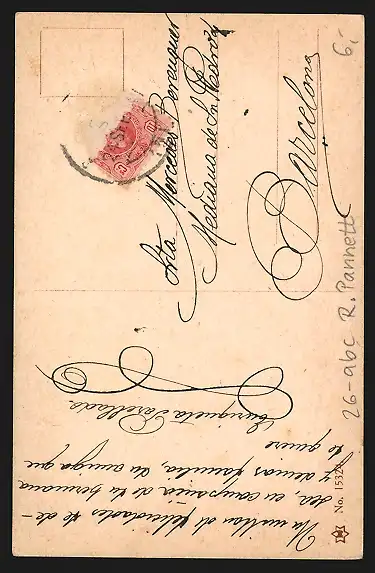 Srta. Mercedes Berenguer
Mediana de Sn. Pedro
Barcelona
Un millon de felicidades te de-
sea en compañia de tu hermana
y demas familia, su amiga que
te quiere
Enriqueta
No. 1532
26-abc R. Pannett
6,-